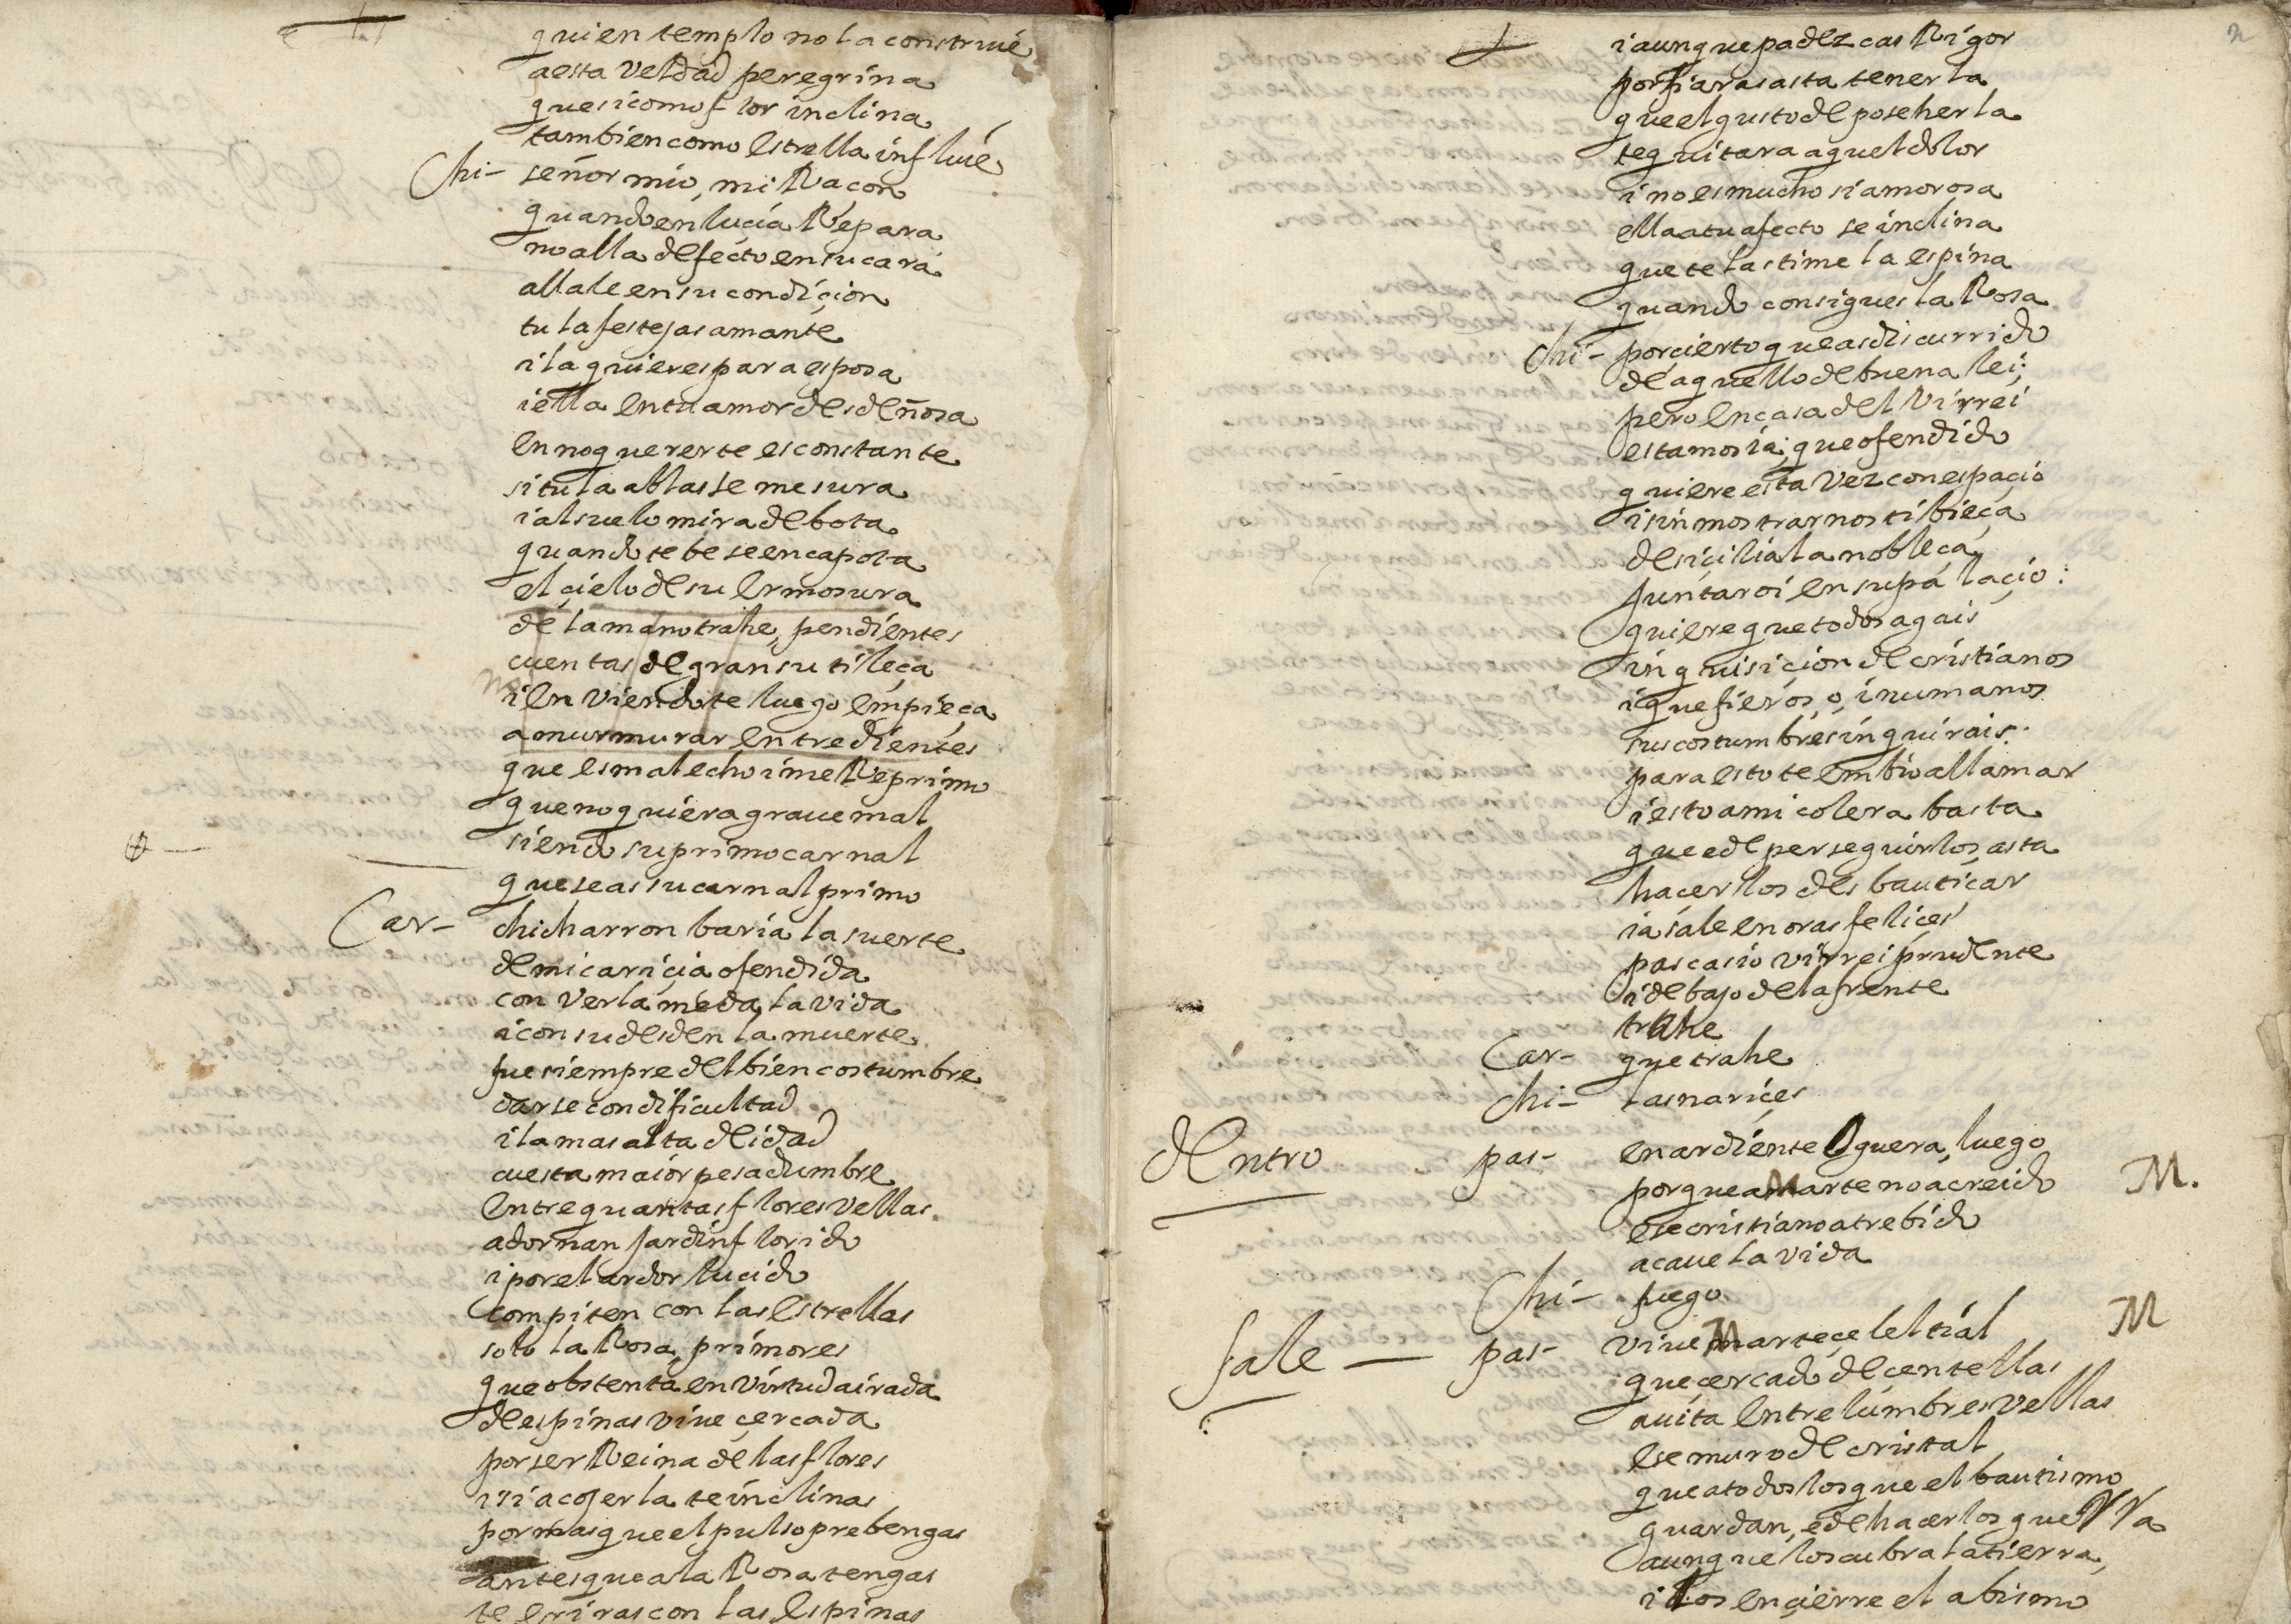 quien templo no la construie
a esta veldad peregrina
que si como flor inclina
tambien como estrella influie
Chi- señor mio, mi Racon
quando en lucia Repara
no alla defecto en su cara
allale en su condiçion
tu la festejas amante
i la quieres para esposa
i ella en tu amor desdeñosa
en no quererte es constante
si tu la ablas se mesura
i al suelo mira debota
quando te be se encapota
el çielo de su ermosura
de la mano trahe, pendientes
cuentas de gran sutileça
i en viendote luego empieça
a murmurar entre dientes
que es mal echo i me Reprimo
que no quiera graue mal
siendo su primo carnal
que seas su carnal primo
Car- chicharron baria la suerte
de mi cariçia ofendida
con verla me da la vida
i con su desden la muerte
fue siempre del bien costumbre
darse con dificultad
i la mas alta deidad
cuesta maior pesadumbre
entre quantas flores vellas
adornan jardin florido
i por el ardor lucido
compiten con las estrellas
solo la Rosa, primores
que obstenta en virtud airada
de espinas viue çercada
por ser Reina de las flores
i si a cojerla te inclinas
por mas que el pulso prebengas
antes que a la Rosa tengas
te eriras con las espinas
2
i aunque padezcas Rigor
porfiaras asta tenerla
que el gusto de poseherla
te quitara aquel dolor
i no es mucho si amorosa
ella a tu afecto se inclina
que te lastime la espina
quando consigues la Rosa
Chi- por cierto que as discurrido
de aquello de buena lei;
pero en casa del Virrei
estamos ia; que ofendido
quiere esta vez con espaçio
i sin mostrarnos tibieça
de siçilia la nobleça
juntar oi en su palaçio:
quiere que todos agais
inquisiçion de cristianos
i que fieros, o, inumanos
sus costumbres inquirais.
para esto te embio a llamar
i esto a mi colera basta
que e de perseguirlos, asta
haçerlos desbautiçar
ia sale en oras felices
pascasio virrei prudente
i debajo de la frente
trahe
Car- que trahe
Chi- las nariçes
dentro pas- en ardiente Oguera, luego
porque a Marte no a creido M.
ese cristiano atrebido
acaue la vida
Chi- fuego
sale — pas- viue Marte çelestial M
que çercado de çentellas
auita entre lumbres vellas
ese muro de cristal
que a todos los que el bautismo
guardan, e de hacerlos guerra
aunque los cubra la tierra,
i los ençierre el abismo